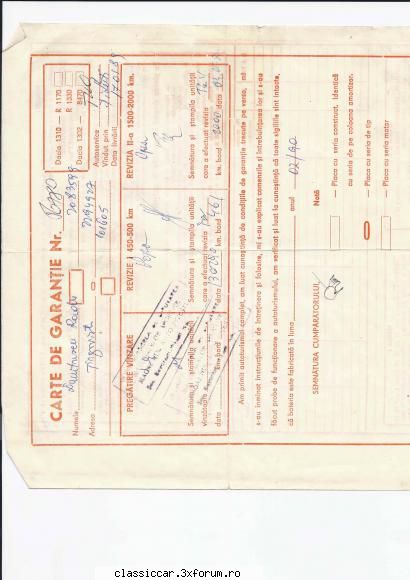 CARTE DE GARANȚIE Nr.
Numele
Adresa
Tîrgoviște
2083598
2292927
101605
Dacia 1310 — R 1170
— R 1330
Dacia 1302 — B470
Autoservice
Vîndut prin
Data livrării
PREGĂTIRE VÎNZARE
Semnătura și ștampila unității
vînzătoare
data
km-bord
REVIZIE I 450-500 km
Semnătura și ștampila unității
care a efectuat revizia
data
km. bord 461
REVIZIA II-a 1500-2000 km.
Semnătura și ștampila unității
care a efectuat revizia
km. bord 2000 data
Am primit autoturismul complet, am luat cunoștință de condițiile de garanție trecute pe verso, mi
s-au înmînat instrucțiunile de întreținere și folosire, mi s-au explicat comenzile și întrebuințarea lor și s-au
făcut proba de funcționare a autoturismului, am verificat și luat la cunoștință că toate sigiliile sînt intacte,
că bateria este fabricată în luna anul 02/90
SEMNĂTURA CUMPĂRĂTORULUI,
Notă
— Placa cu seria construct. identică
cu seria de pe coloana amortizor.
— Placa cu seria de tip
— Placa cu seria motor
classiccar.3xforum.ro